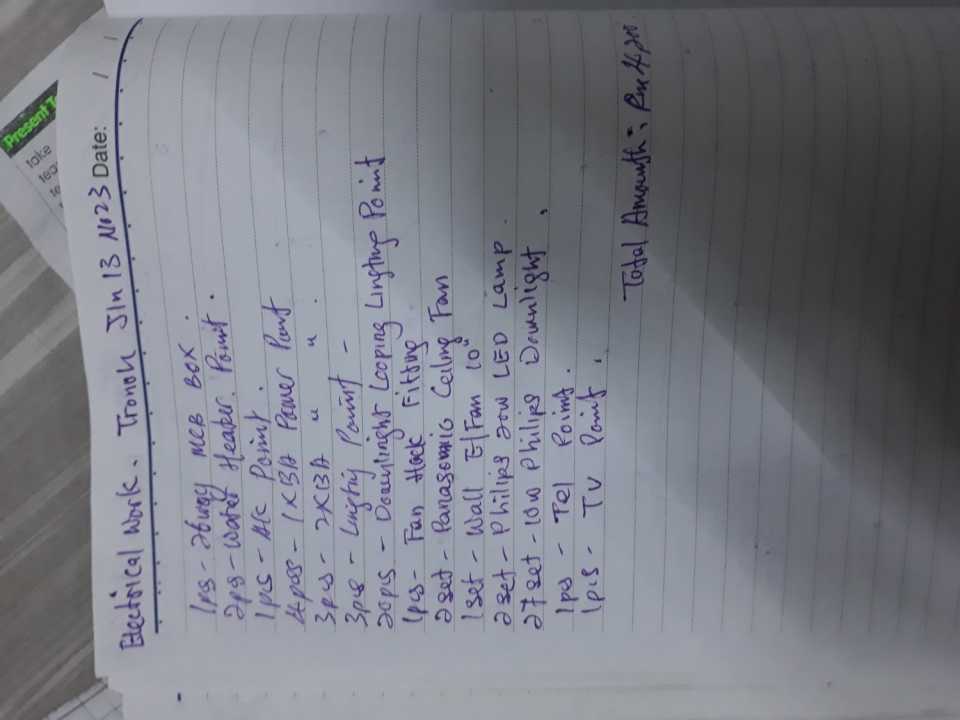 Present T
take
tea
te
Date: / /
Electrical Work. Tronoh Jln 13 No 23
1pcs - 26way MCB BOX.
2pcs - Water Heater. Point.
1pcs - A/C Point.
4pcs - 1X13A Power Point
3pcs - 2X13A " " .
3pcs - Lingting Point -
20pcs - Downlinght Looping Lingting Point
1pcs - Fan Hock Fitting
2set - Panasonic Ceiling Fan
1set - Wall E/Fan 10"
2set - Philips 20w LED Lamp.
27set - 10w Philips Downlight,
1pcs - Tel Point.
1pcs - TV Point,
Total Amounth: Rm